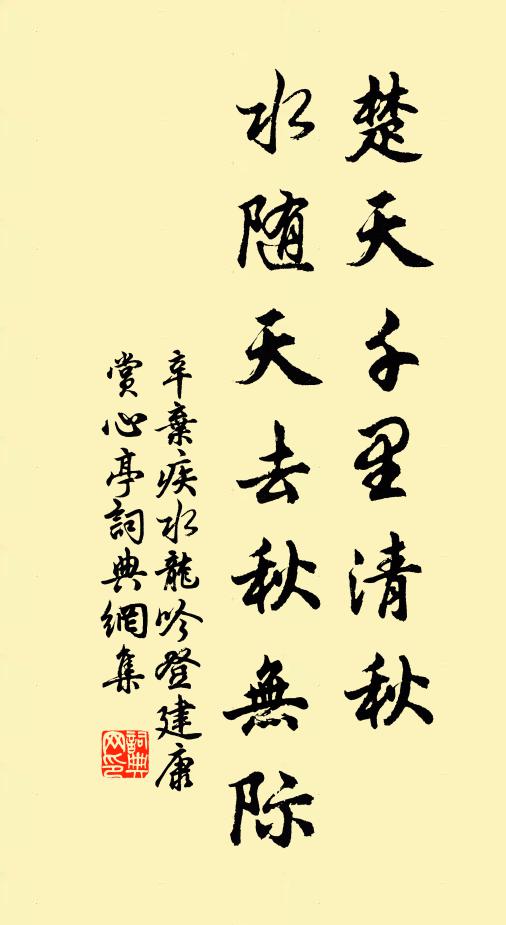 楚天千里清秋
水随天去秋無际
辛棄疾水龍吟登建康
賞心亭詞典網集
詞典网印